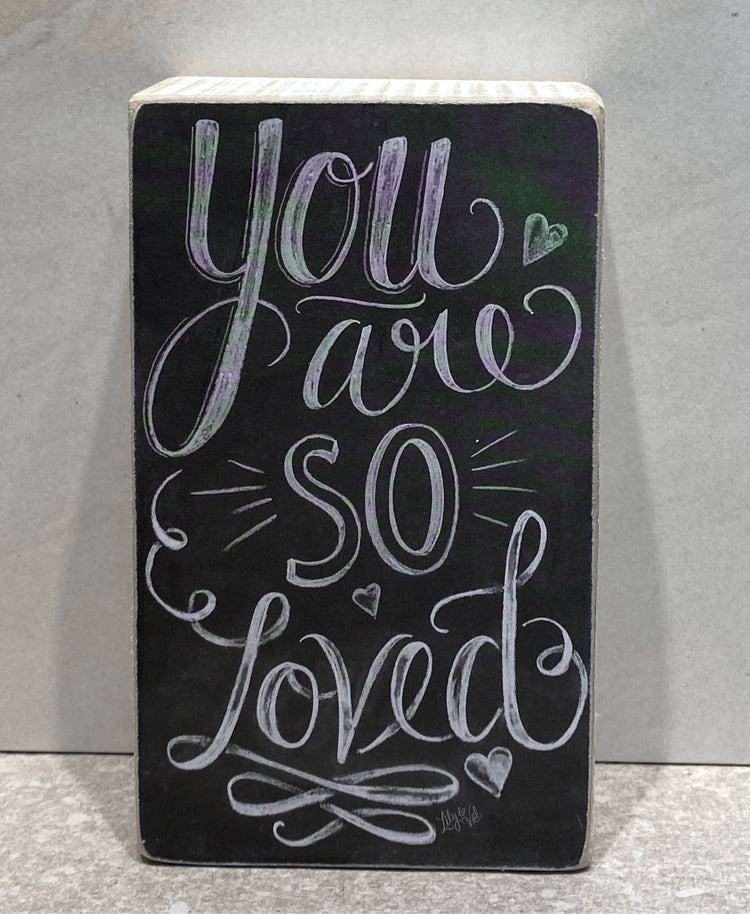 You
are
SO
Loved
Lily &
Val